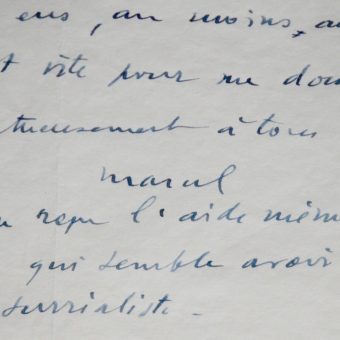 ens, au moins, au
t vite pour me don
tueusement à tous
Marcel
reçu l'aide mém
qui semble avoir
surrialiste -